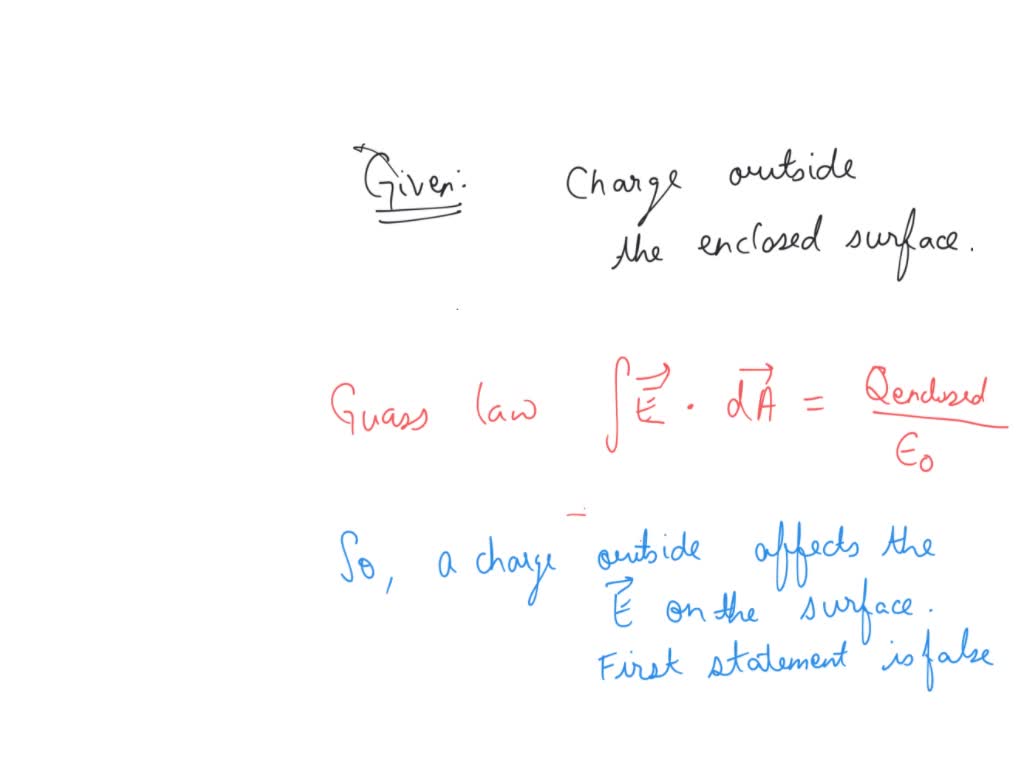 Given: Charge outside
the enclosed surface.
Guass law ∫E⃗ · dA⃗ = Qenclosed / ϵ0
So, a charge outside affects the
E⃗ on the surface.
First statement is false